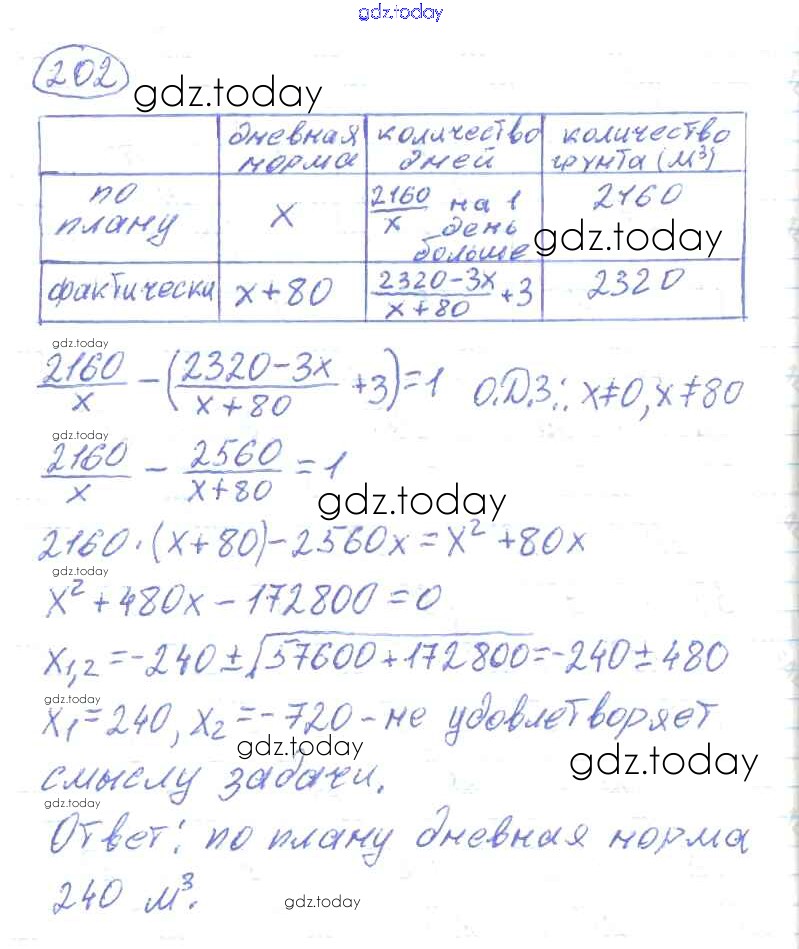 gdz.today
202
gdz.today
дневная норма | количество дней | количество грунта (м³)
по плану | x | 2160/x на 1 день больше | 2160
gdz.today
фактически | x+80 | (2320-3x)/(x+80) +3 | 2320
gdz.today
2160/x - ((2320-3x)/(x+80) +3)=1 О.Д.З.: x≠0, x≠80
gdz.today
2160/x - 2560/(x+80) = 1
gdz.today
2160·(x+80)-2560x=x²+80x
gdz.today
x²+480x-172800=0
x₁,₂=-240±√(57600+172800)=-240±480
gdz.today
x₁=240, x₂=-720-не удовлетворяет
gdz.today
смыслу задачи.
gdz.today
gdz.today
Ответ: по плану дневная норма
240 м³.
gdz.today